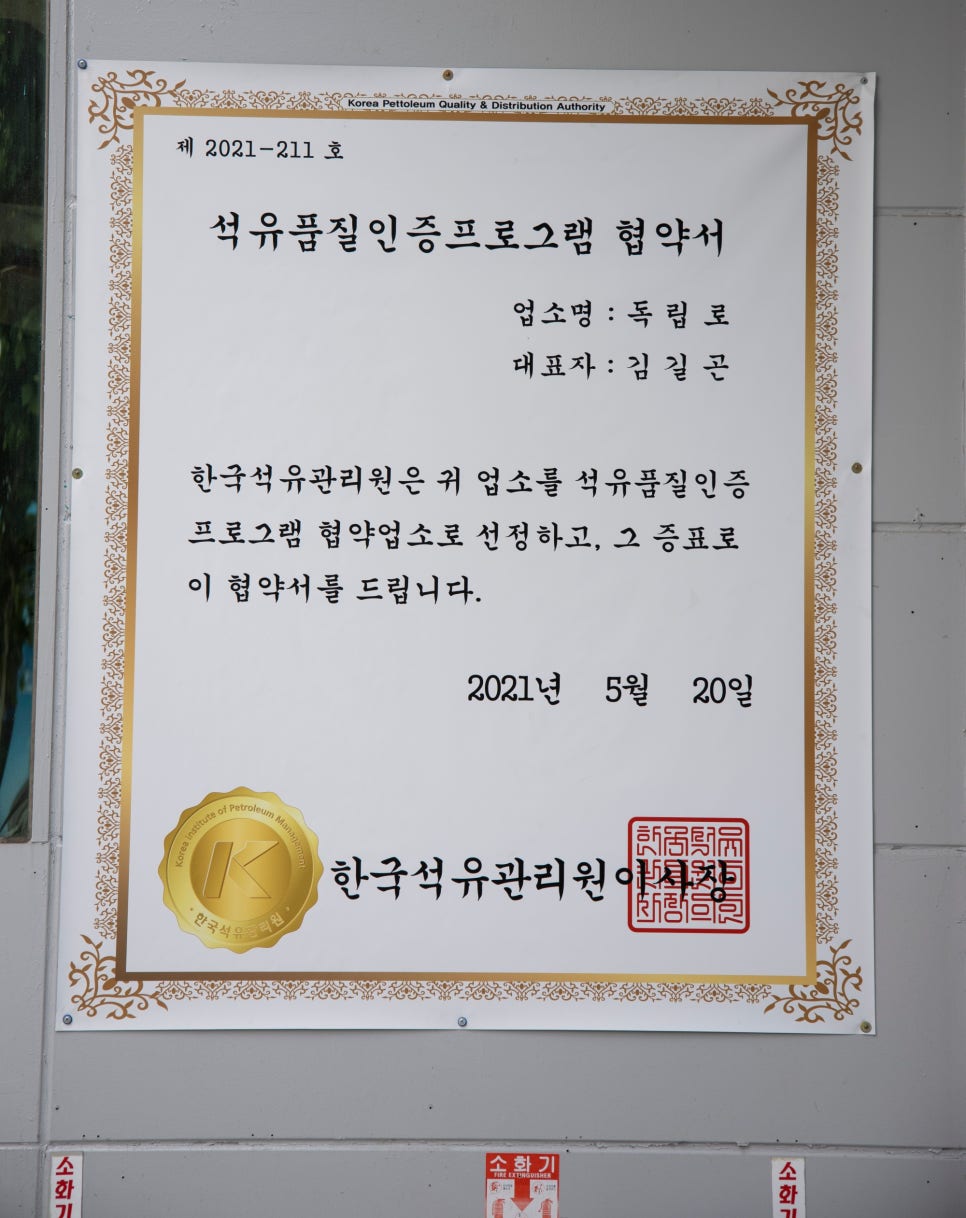 Korea Pettoleum Quality & Distribution Authority
제 2021-211 호
석유품질인증프로그램 협약서
업소명 : 독 립 로
대표자 : 김 길 곤
한국석유관리원은 귀 업소를 석유품질인증
프로그램 협약업소로 선정하고, 그 증표로
이 협약서를 드립니다.
2021년 5월 20일
Korea Institute of Petroleum Management
한국석유관리원
한국석유관리원이사장
소화기
소화기
FIRE EXTINGUISHER
소화기